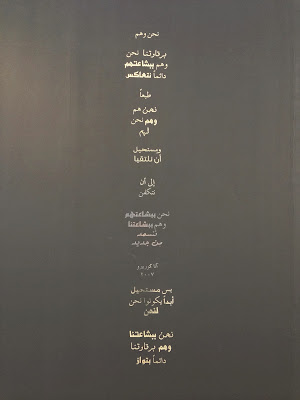 نحن وهم
برقاوتنا نحن
وهم ببشاعتهم
دائماً نتعاكس
طبعاً
نحن هم
وهم نحن
ليم
ويستحيل
أن نلتقيا
إلى أن
نتكفن
نحن ببشاعتهم
وهم ببشاعتنا
نسعد
من جديد
٢٠٠٧
بس مستحيل
أيضاً يكونوا نحن
لنحن
نحن ببشاعتنا
وهم برقاوتنا
دائماً بتواز